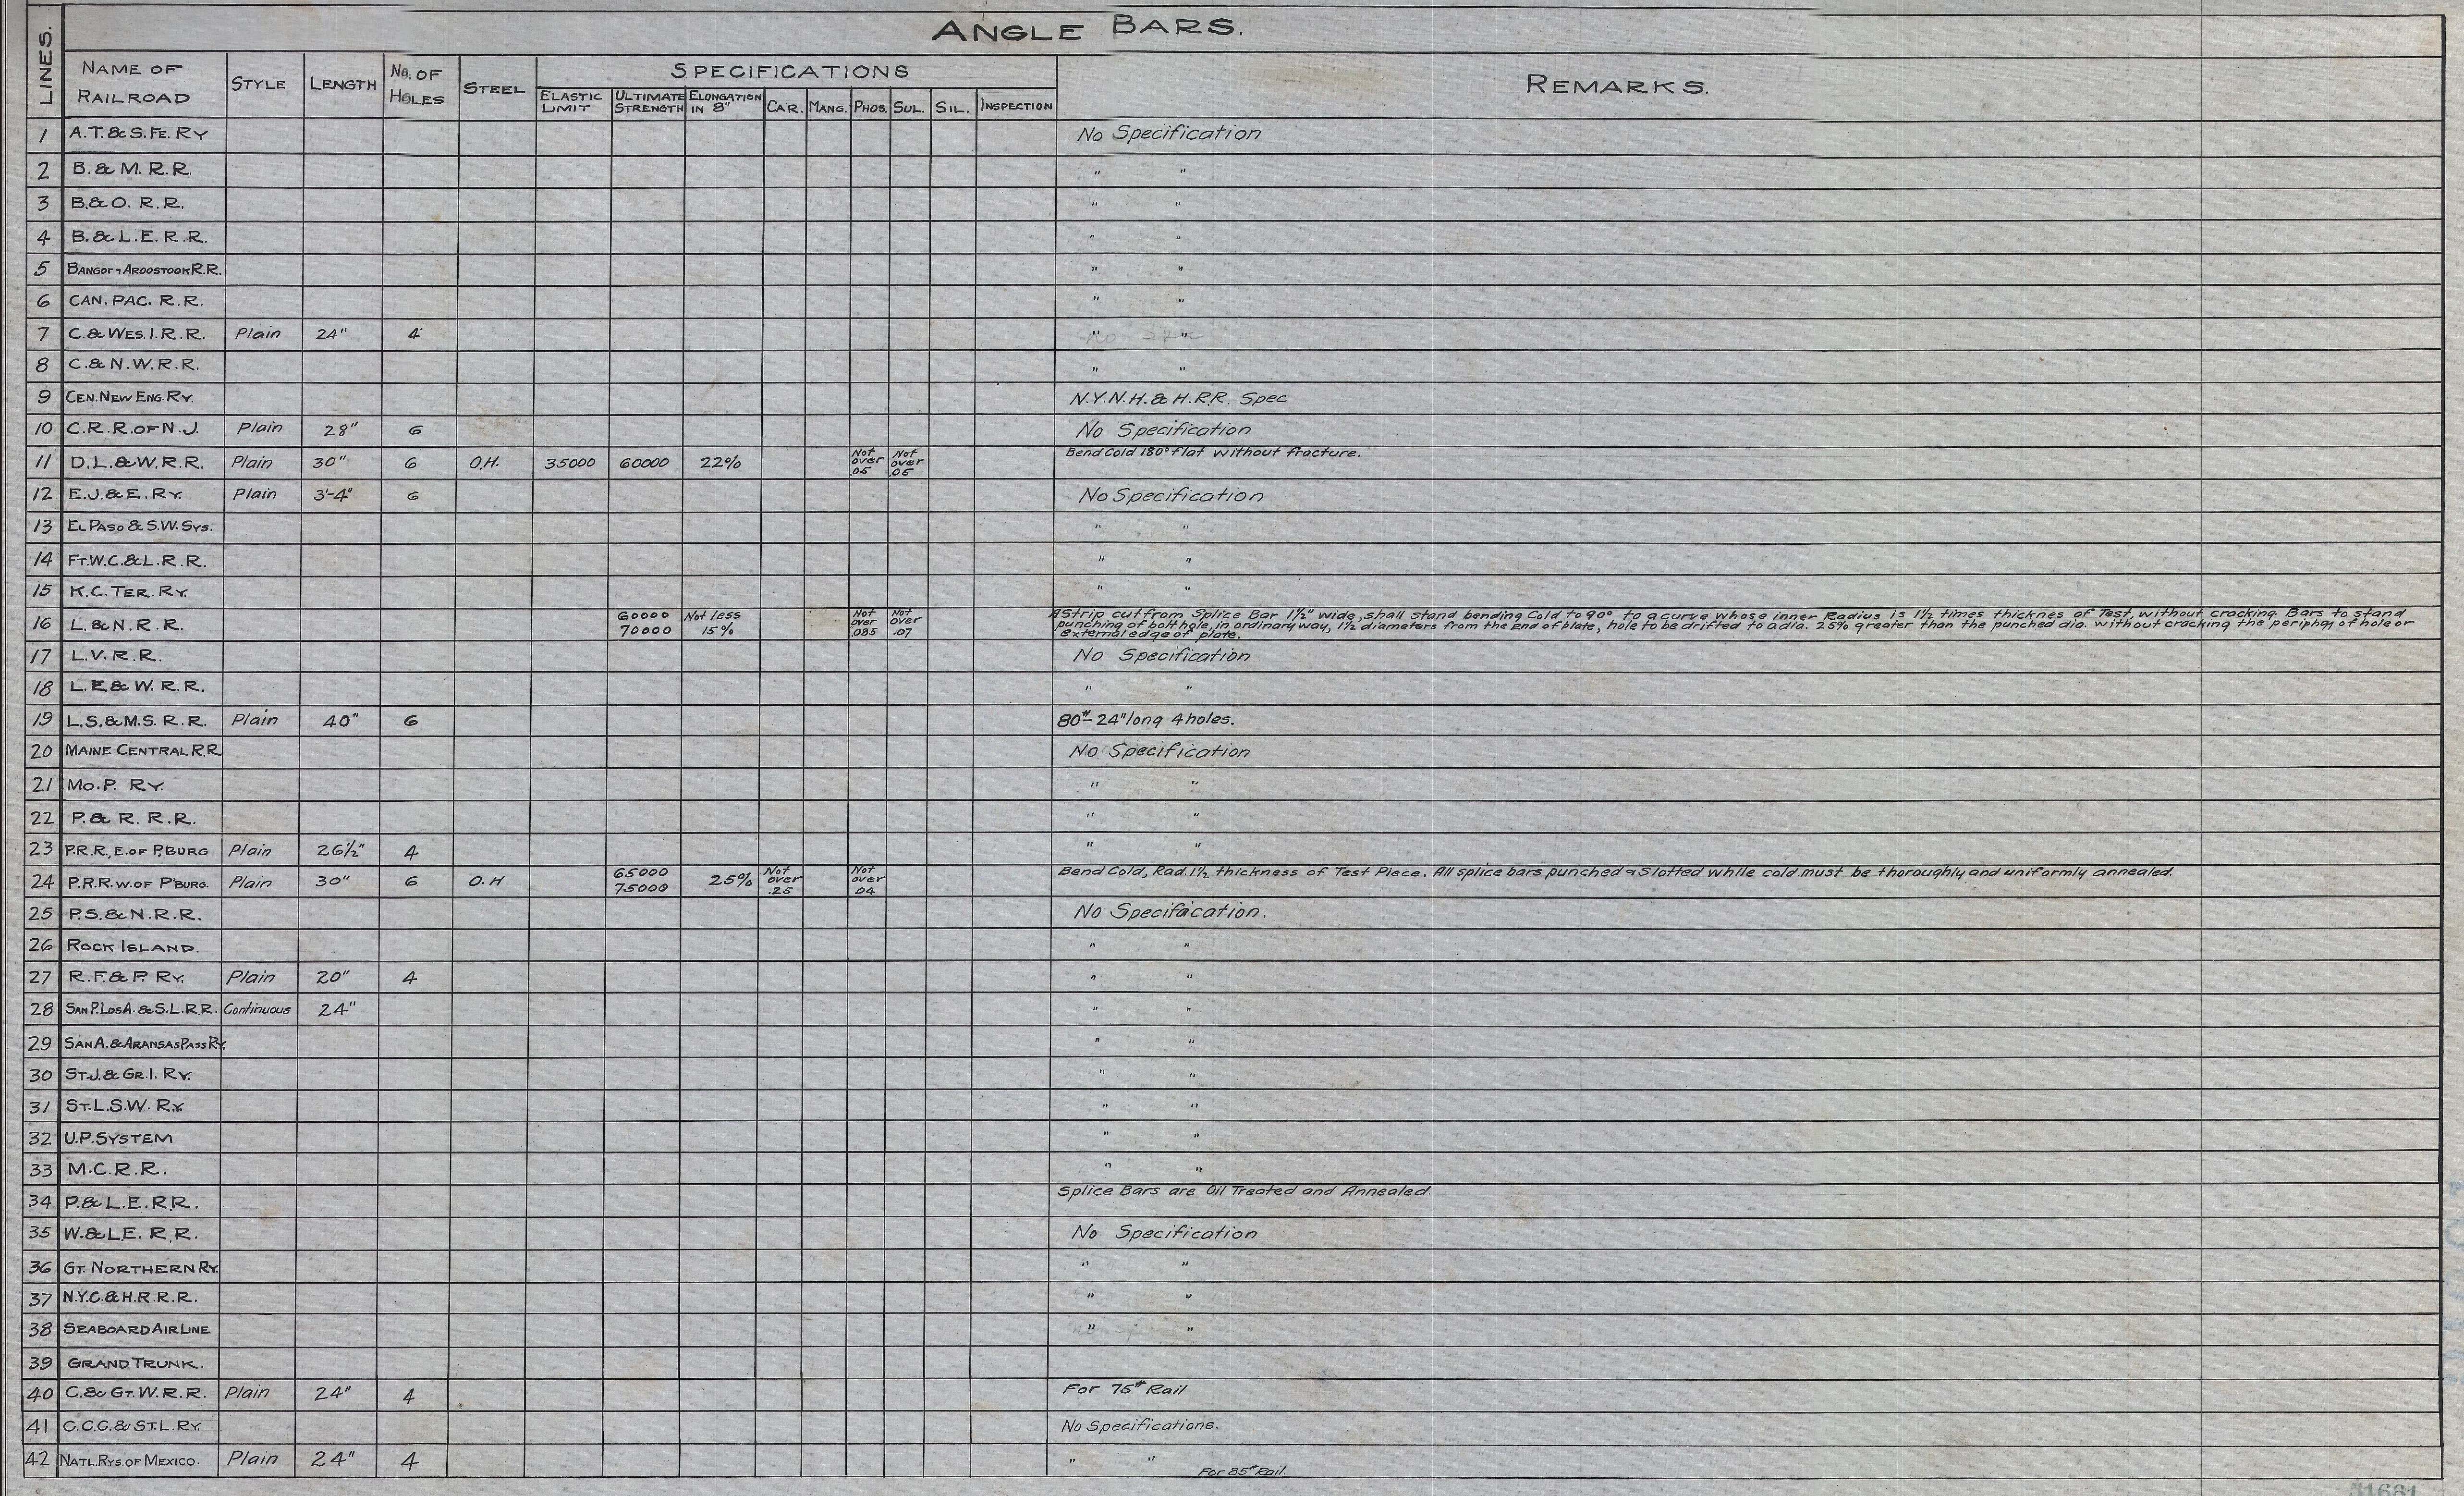 ANGLE BARS.
LINES.
NAME OF RAILROAD
STYLE
LENGTH
No. OF HOLES
STEEL
SPECIFICATIONS
ELASTIC LIMIT
ULTIMATE STRENGTH
ELONGATION IN 8"
CAR.
MANG.
PHOS.
SUL.
SIL.
INSPECTION
REMARKS.
1 A.T. & S.FE. RY No Specification
2 B. & M. R. R. " "
3 B. & O. R. R. " "
4 B. & L. E. R. R. " "
5 BANGOR & AROOSTOOK R.R. " "
6 CAN. PAC. R. R. " "
7 C. & WES. I. R. R. Plain 24" 4 " "
8 C. & N. W. R. R. " "
9 CEN. NEW ENG. RY. N.Y.N.H. & H.R.R. Spec
10 C. R. R. OF N. J. Plain 28" 6 No Specification
11 D. L. & W. R. R. Plain 30" 6 O.H. 35000 60000 22% Not over .05 Not over .05 Bend Cold 180° flat without fracture.
12 E. J. & E. RY. Plain 3'-4" 6 No Specification
13 EL PASO & S.W. SYS. " "
14 FT. W. C. & L. R. R. " "
15 K. C. TER. RY. " "
16 L. & N. R. R. 60000 70000 Not less 15% Not over .085 Not over .07 A Strip cut from Splice Bar 1½" wide, shall stand bending Cold to 90° to a curve whose inner Radius is 1½ times thicknes of Test, without cracking. Bars to stand
punching of bolt hole, in ordinary way, 1½ diameters from the end of plate, hole to be drifted to a dia. 25% greater than the punched dia. without cracking the of hole or
external edge of plate.
17 L. V. R. R. No Specification
18 L. E. & W. R. R. " "
19 L. S. & M. S. R. R. Plain 40" 6 80# - 24" long 4 holes.
20 MAINE CENTRAL R.R. No Specification
21 MO. P. RY. " "
22 P. & R. R. R. " "
23 P. R. R., E. OF P'BURG Plain 26½" 4 " "
24 P. R. R. W. OF P'BURG. Plain 30" 6 O. H 65000 75000 25% Not over .25 Not over .04 Bend Cold, Rad. 1½ thickness of Test Piece. All splice bars punched & Slotted while cold must be thoroughly and uniformly annealed.
25 P. S. & N. R. R. No Specification.
26 ROCK ISLAND. " "
27 R. F. & P. RY. Plain 20" 4 " "
28 SAN P. LOS A. & S. L. R. R. Continuous 24" " "
29 SAN A. & ARANSAS PASS RY. " "
30 ST. J. & GR. I. RY. " "
31 ST. L. S. W. RY " "
32 U. P. SYSTEM " "
33 M. C. R. R. " "
34 P. & L. E. R.R. Splice Bars are Oil Treated and Annealed.
35 W. & L.E. R. R. No Specification
36 GT. NORTHERN RY. " "
37 N. Y. C. & H. R. R. R. " "
38 SEABOARD AIR LINE " "
39 GRAND TRUNK.
40 C. & GT. W. R. R. Plain 24" 4 For 75# Rail
41 C. C. C. & ST. L. RY. No Specifications.
42 NATL. RYS. OF MEXICO. Plain 24" 4 " " For 85# Rail.
51661